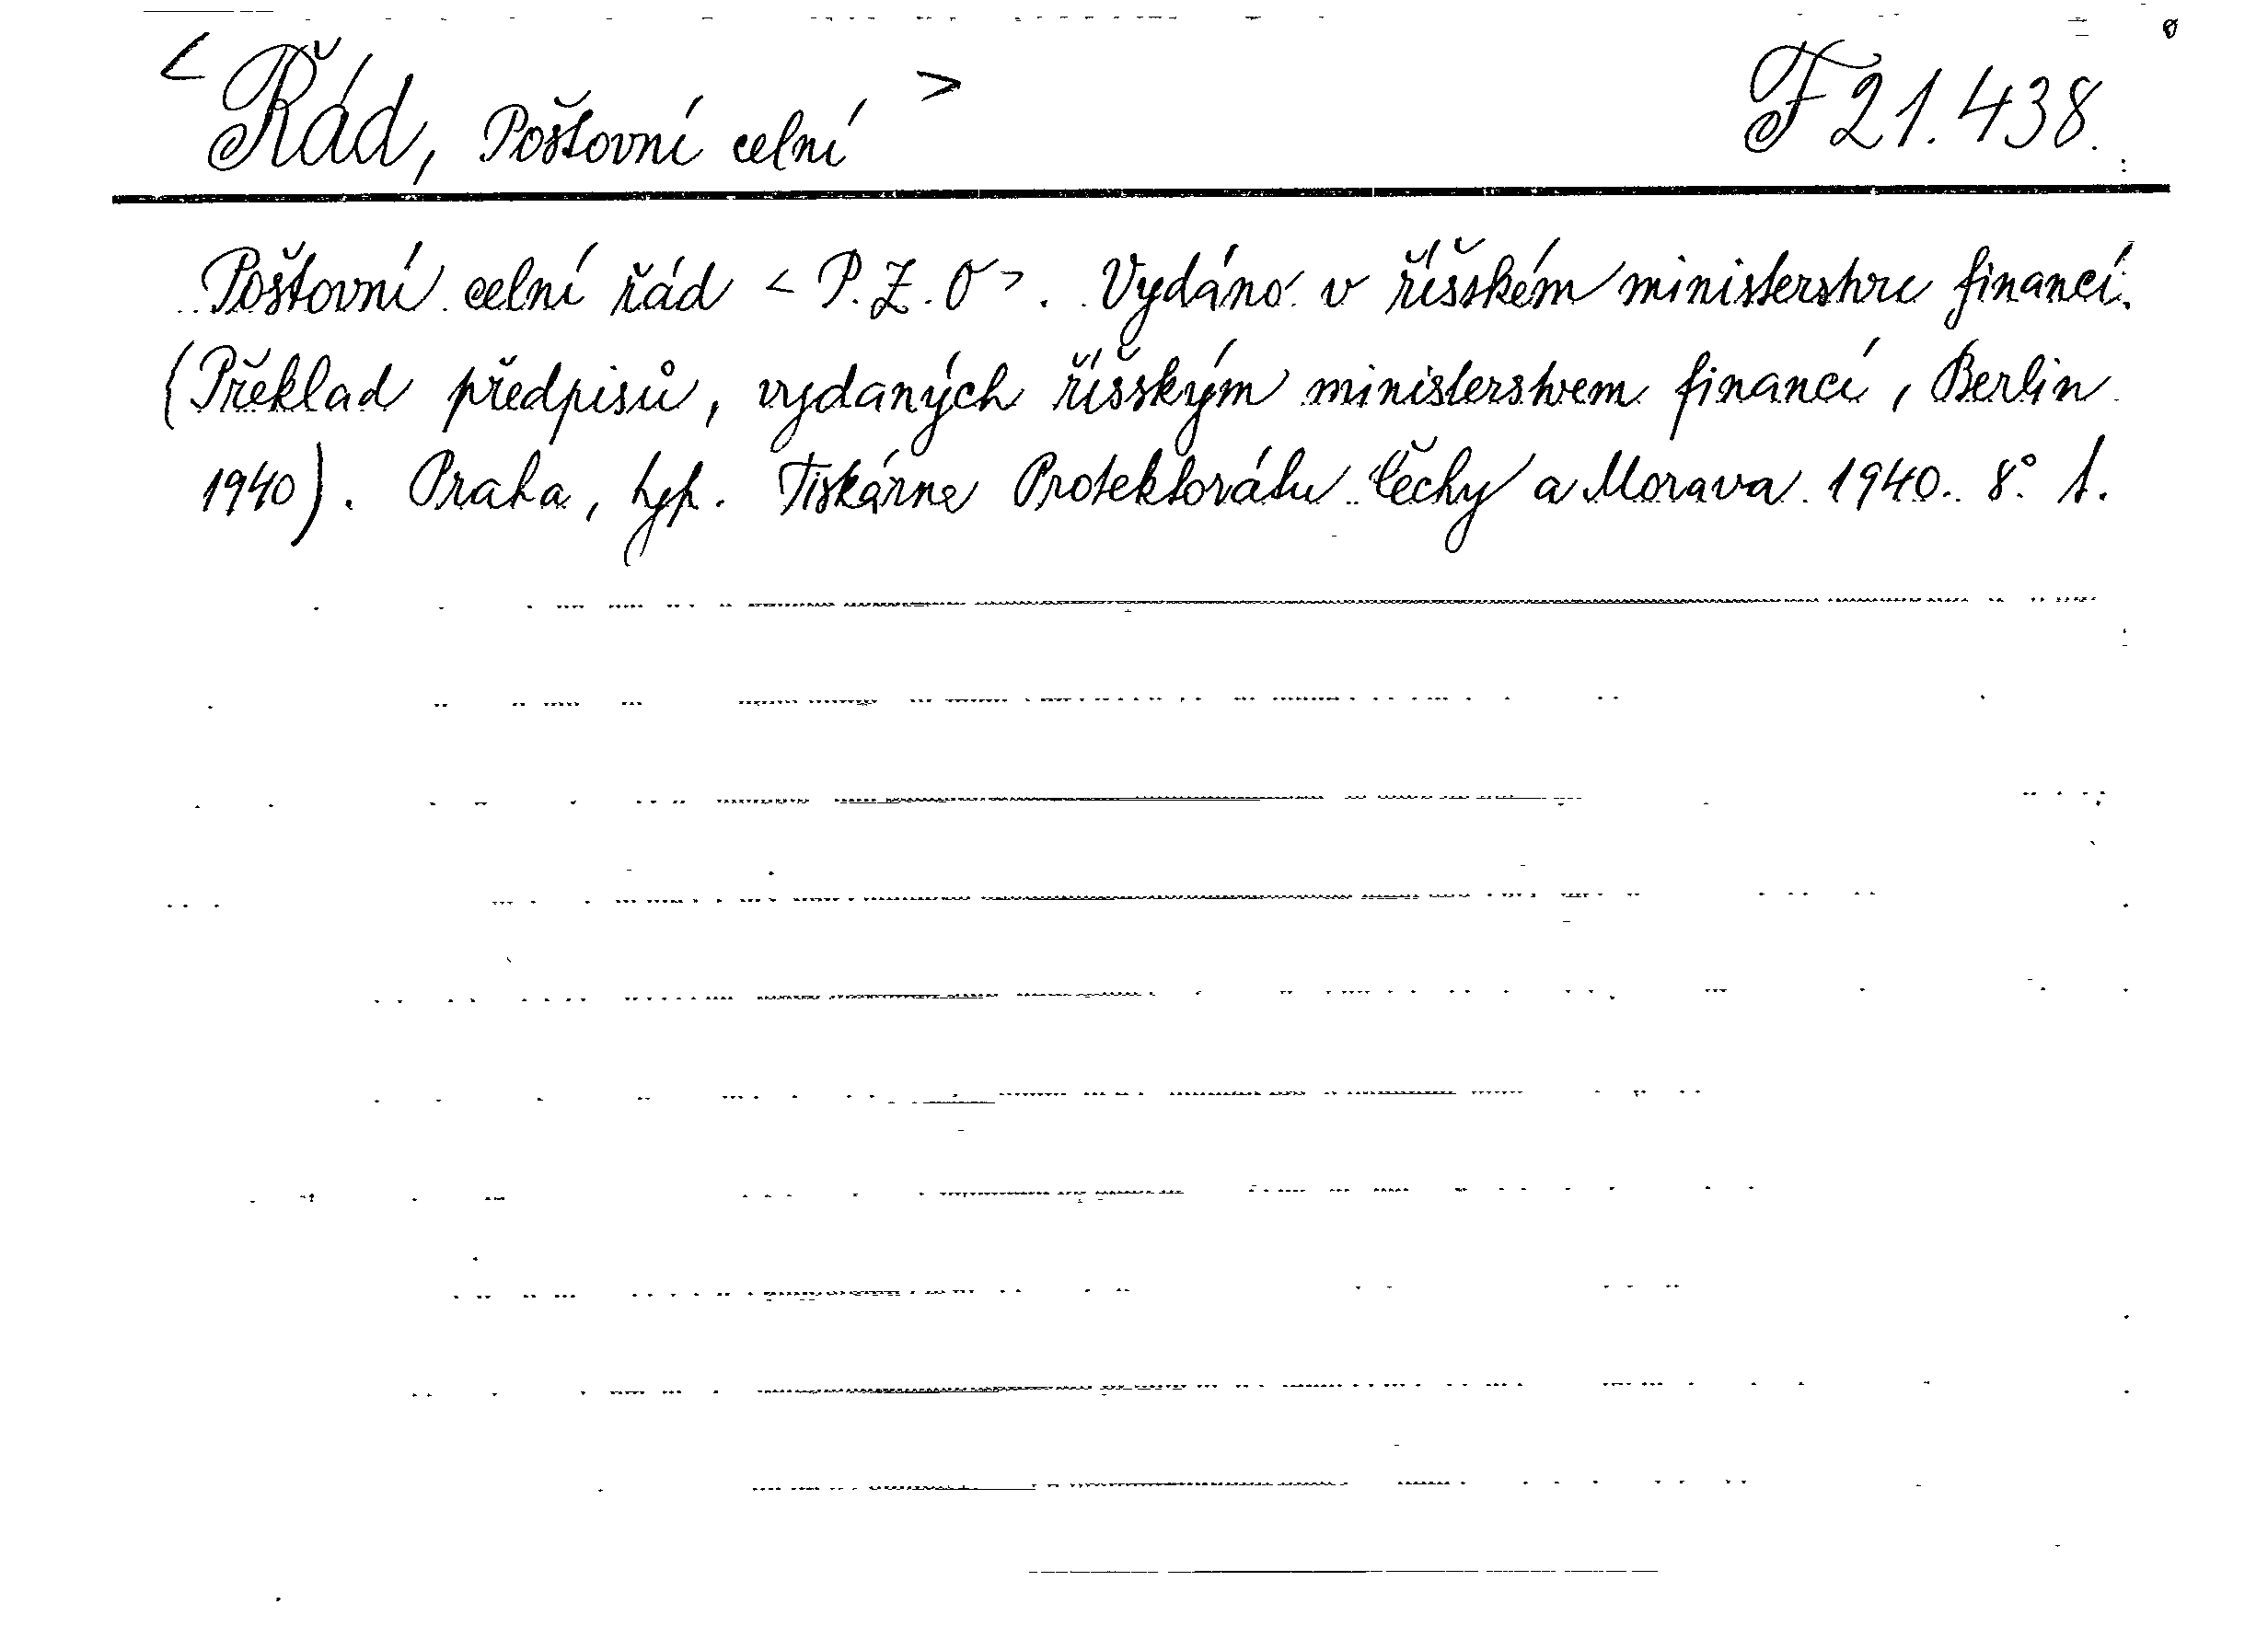 < Řád, Poštovní celní > F 21.438.
Poštovní celní řád < P.Z.O >. Vydáno v říšském ministerstvu financí.
(Překlad předpisů, vydaných říšským ministerstvem financí, Berlin
1940). Praha, typ. Tiskárna Protektorátu Čechy a Morava 1940. 8° 1.